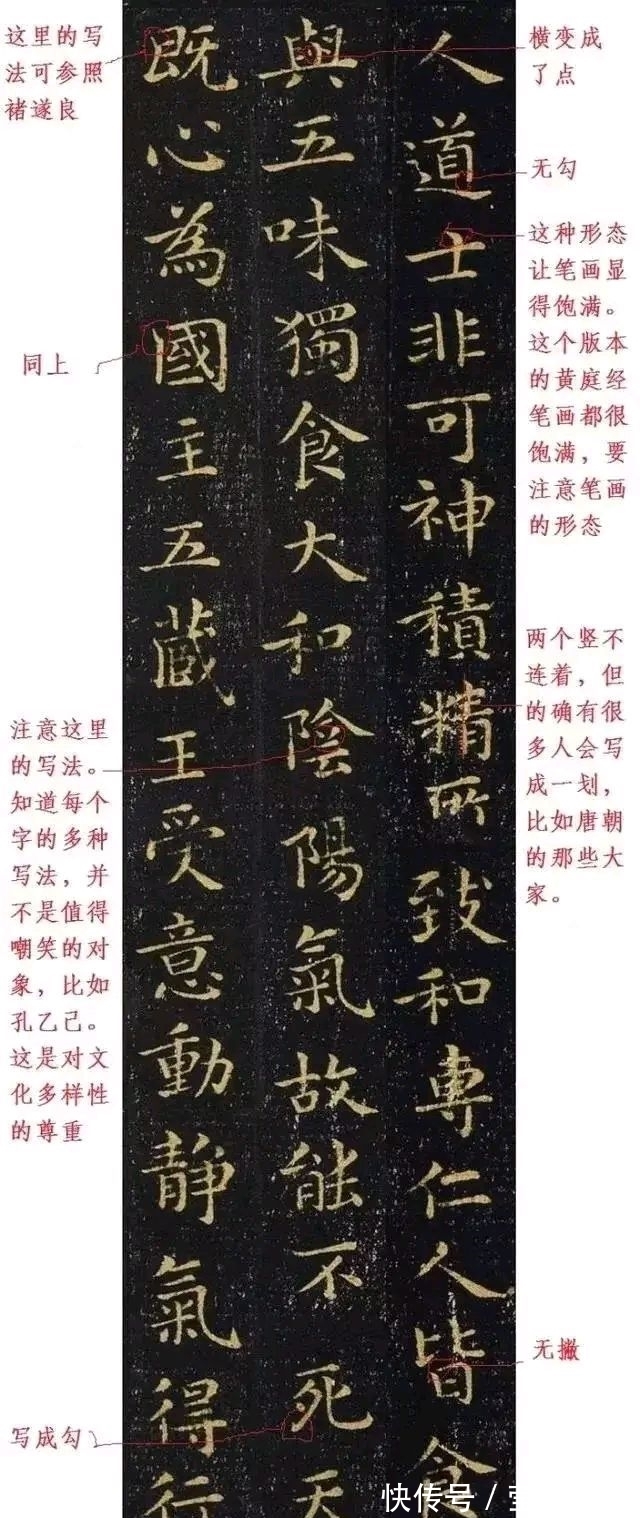 人道士非可神積精所致和專仁人皆食
與五味獨食大和陰陽氣故能不死天
既心為國主五藏王受意動靜氣得行
这里的写
法可参照
褚遂良
同上
注意这里
的写法。
知道每个
字的多种
写法，并
不是值得
嘲笑的对
象，比如
孔乙己。
这是对文
化多样性
的尊重
写成勾
横变成
了点
无勾
这种形态
让笔画显
得饱满。
这个版本
的黄庭经
笔画都很
饱满，要
注意笔画
的形态
两个竖不
连着，但
的确有很
多人会写
成一划，
比如唐朝
的那些大
家。
无撇
快传号 /